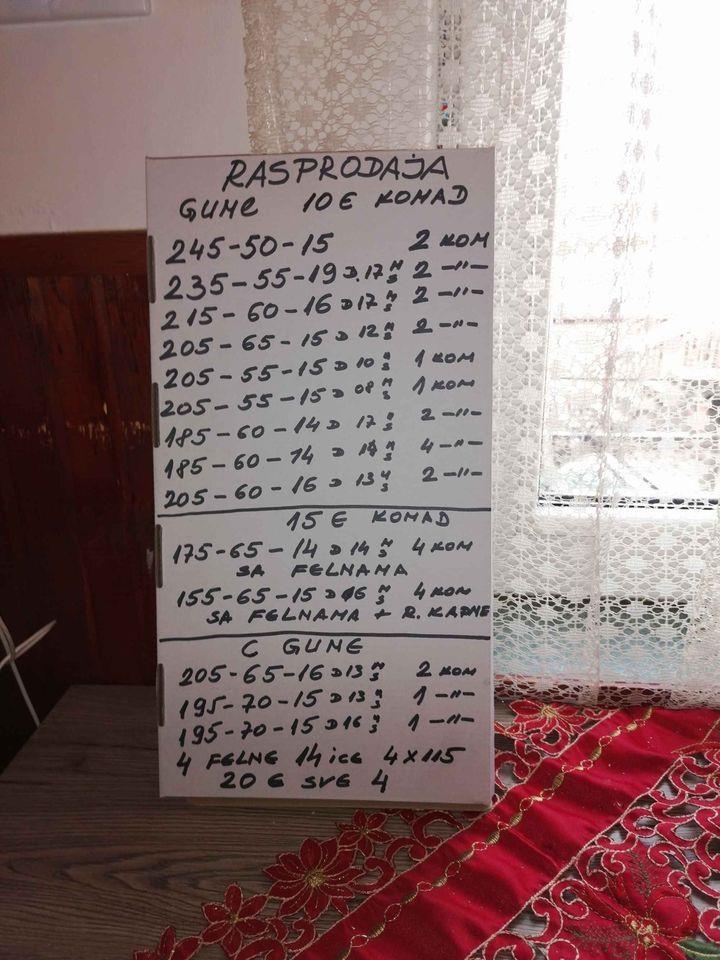 RASPRODAJA
GUME 10 € KOMAD
245-50-15 2 KOM
235-55-19 D.17 M S 2 -"-
215-60-16 D 17 M S 2 -"-
205-65-15 D 12 M S 2 -"-
205-55-15 D 10 M S 1 KOM
205-55-15 D 08 M S 1 KOM
185-60-14 D 17 M S 2 -"-
185-60-14 D M S 4 -"-
205-60-16 D 13 M S 2 -"-
15 € KOMAD
175-65-14 D 14 M S 4 KOM
SA FELNAMA
155-65-15 D 16 M S 4 KOM
SA FELNAMA + R. KAPNE
C GUME
205-65-16 D 13 M S 2 KOM
195-70-15 D 13 M S 1 -"-
195-70-15 D 16 M S 1 -"-
4 FELNE 14 ice 4 x 115
20 € SVE 4